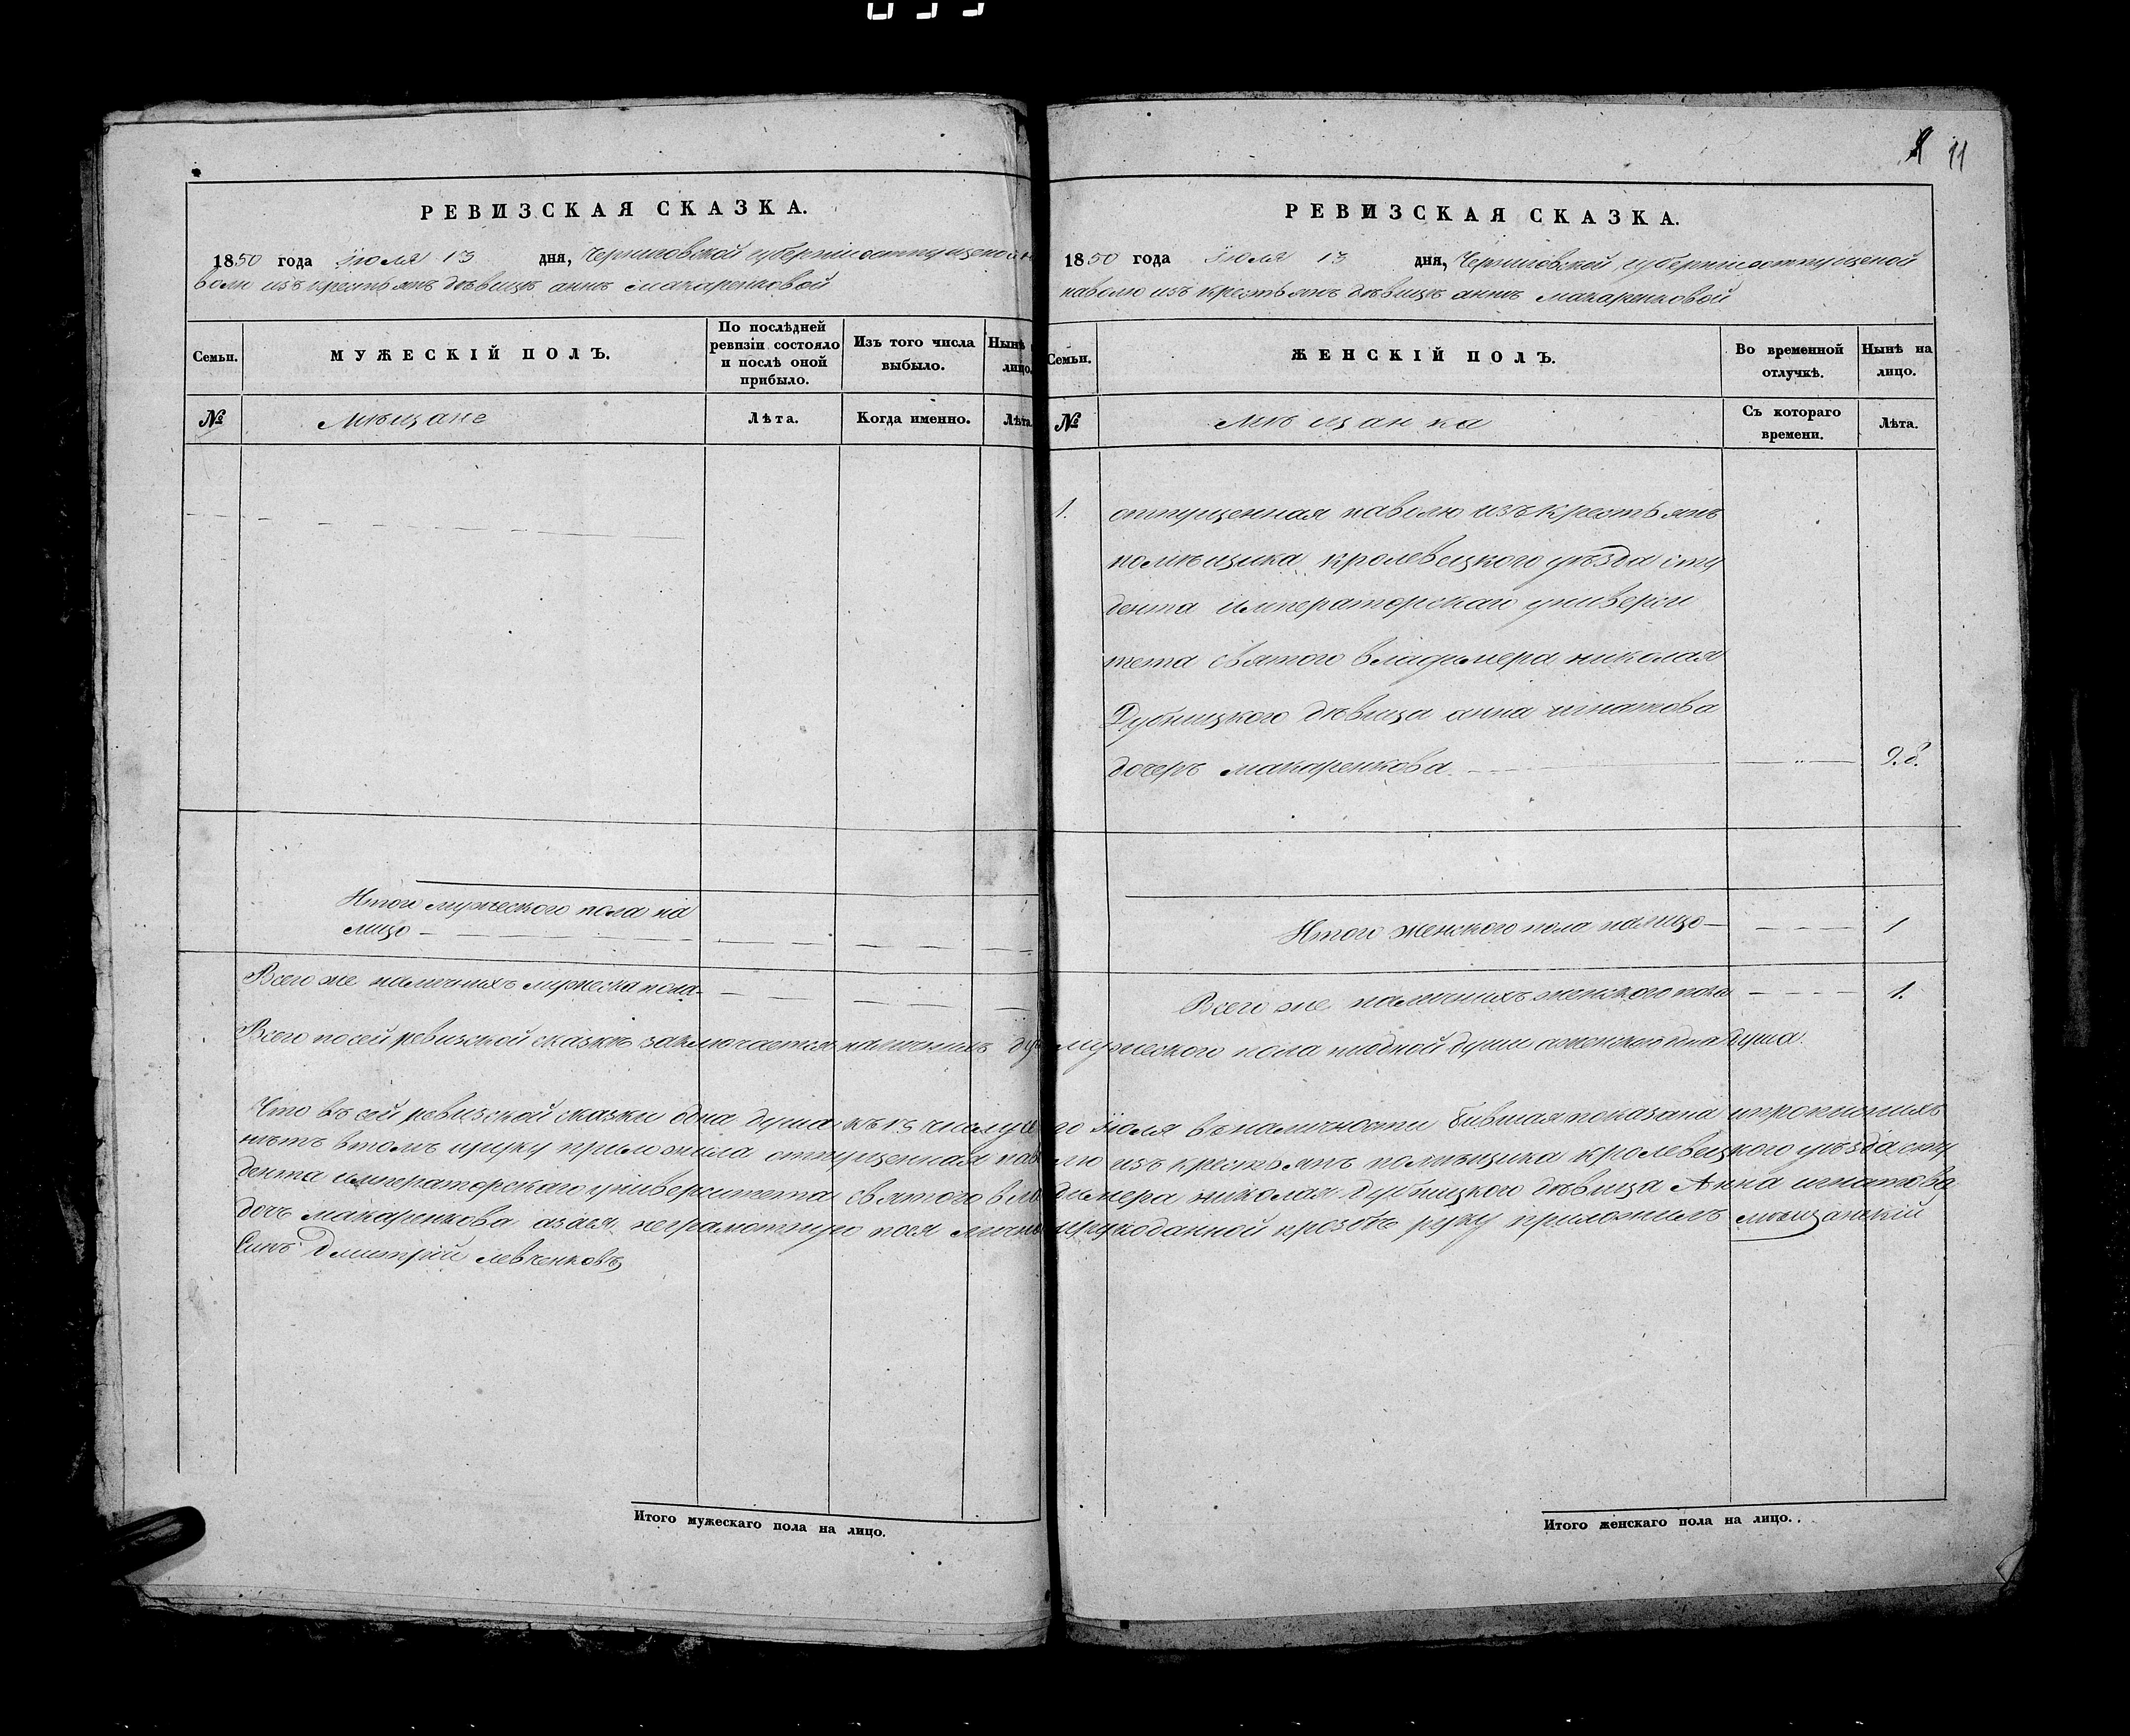 11
РЕВИЗСКАЯ СКАЗКА.
1850 года Іюля 13 дня, Черниговской губерніи отпущеной на
волю изъ крестьянъ дѣвицѣ аннѣ макаренковой
Семьи.
МУЖЕСКІЙ ПОЛЪ.
По послѣдней ревизіи состояло и послѣ оной прибыло.
Изъ того числа выбыло.
Нынѣ
лицо.
№
Мѣщане
Лѣта.
Когда именно.
Лѣта.
Итого мужеского пола на
лицо
Всего же наличныхъ мужеска пола
РЕВИЗСКАЯ СКАЗКА.
1850 года Іюля 13 дня, Черниговской губерніи отпущеной
наволю изъ крестьянъ дѣвицѣ аннѣ макаренковой
Семьи.
ЖЕНСКІЙ ПОЛЪ.
Во временной отлучкѣ.
Нынѣ на лицо.
№
Мѣщанка
Съ котораго времени.
Лѣта.
1. отпущенная наволю изъ крестьянъ
помѣщика кролевецкого уѣзда сту
дента императорскаго универси
тета святого владимера николая
Дубницкого дѣвица анна игнатова
дочеръ макаренкова.
Итого женского пола налицо 1
Всего же наличныхъ женского пола 1.
Всего посей ревизской сказкѣ заключается наличныхъ душ мужеского пола ниодной души аженского одна душа.
Что въ сей ревизской сказки одна душа къ 13 числу сего Іюля въналичности бывшая показана ипрописныхъ
нѣтъ втомъ ируку приложила отпущенная наволю изъ крестьянъ помѣщика кролевецкого уѣзда сту
дента императорскаго университета святого владимера николая Дубницкого дѣвица Анна игнатова
дочъ макаренкова азаея неграмотную поя личной ирукоданной прозбѣ руку приложилъ мѣщанскій
Синъ Дмитрій левченковъ
Итого мужескаго пола на лицо.
Итого женскаго пола на лицо..